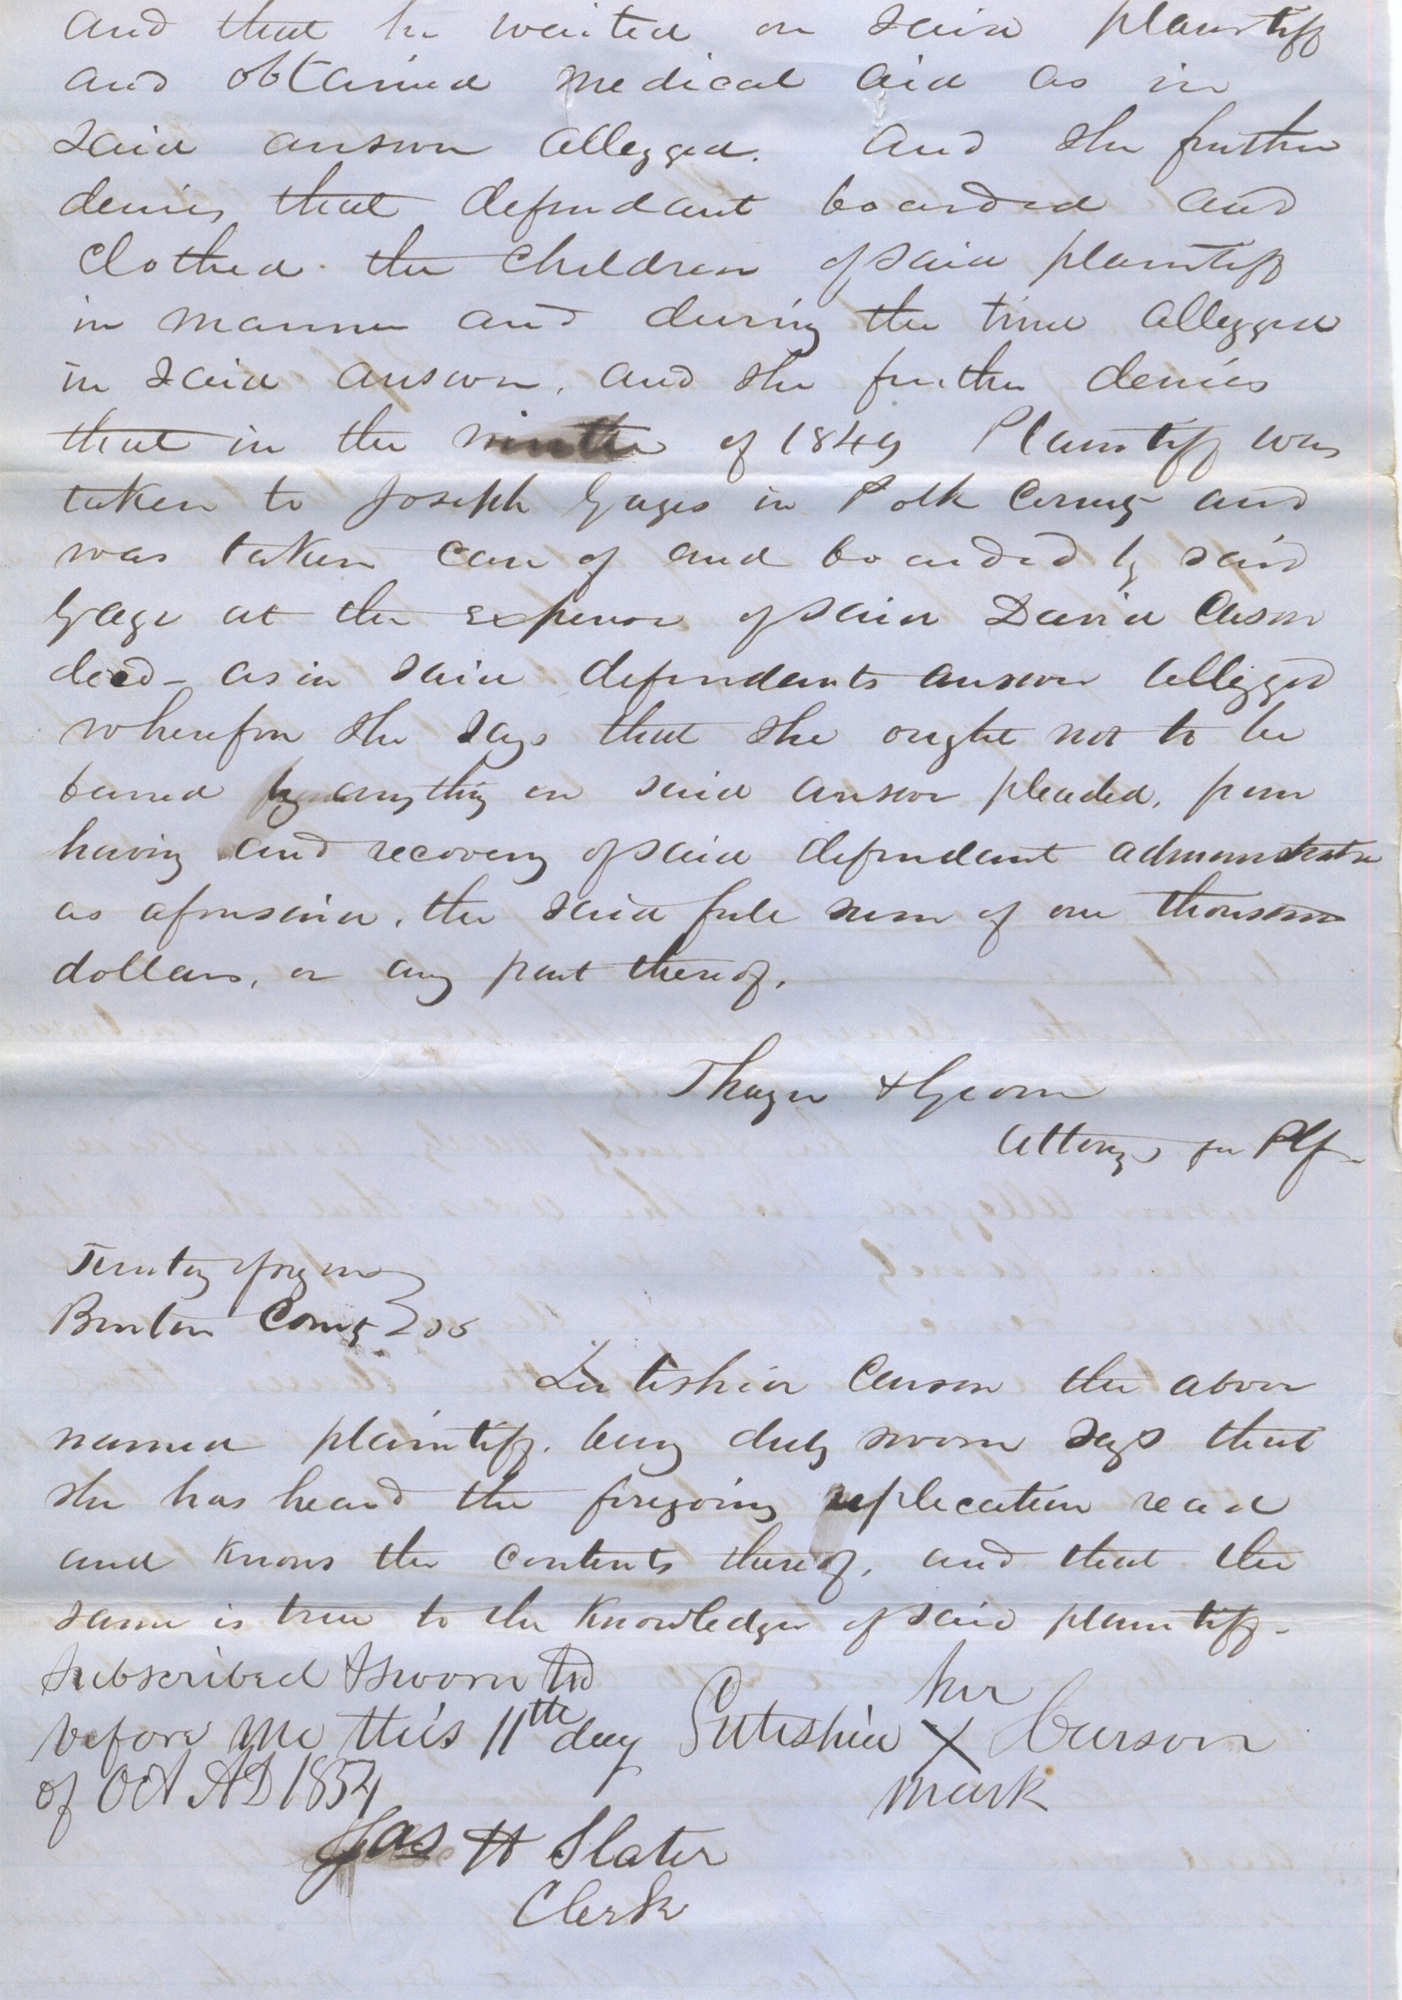 and that he waited on said plaintiff
and obtained medical aid as in
said answer alleged. And she further
denies that defendant boarded and
clothed the children of said plaintiff
in manner and during the time allegged
in said answer. and she further denies
that in the winter of 1849 Plaintiff was
taken to Joseph Gages in Polk County and
was taken care of and boarded by said
Gage at the expense of said David Carson
decd - as in said defendants answer allegged
wherefore she says that she ought not to be
barred by anything in said answer pleaded, from
having and recovering of said defendant administrator
as aforesaid, the said full sum of one thousand
dollars, or any part thereof.
Thayer & Grover
Attorneys for Plf
Territory of Oregon
Benton County } ss
Letitshia Carson the above
named plaintiff, being duly sworn says that
she has heard the foregoing replication read
and knows the contents thereof, and that the
same is true to the knowledge of said plaintiff.
Subscribed & sworn to
before me this 11th day
of Oct AD 1854
her
Lutishia X Carson
mark
Jas H Slater
Clerk